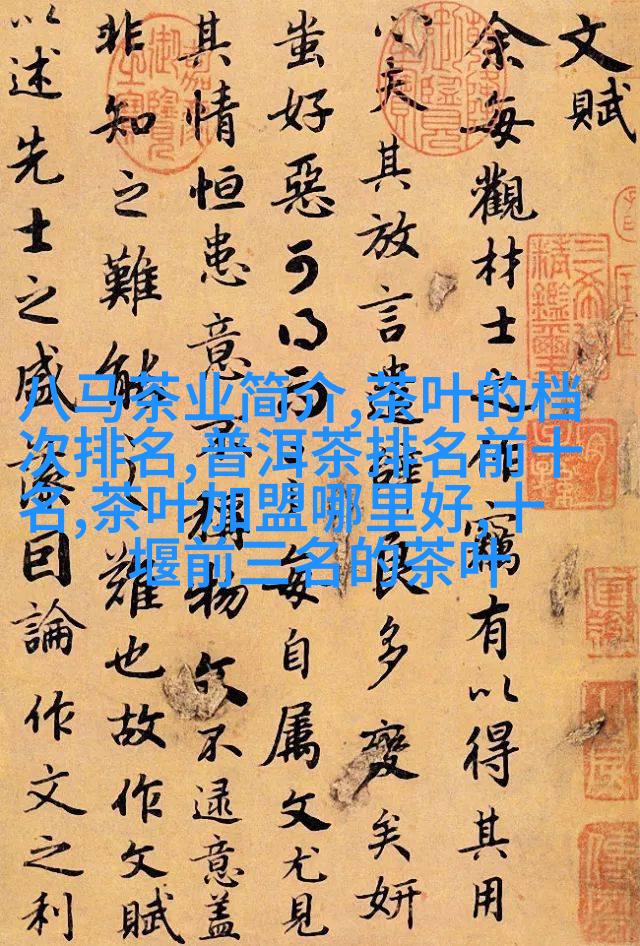 八马茶业简介,茶叶的档
次排名,普洱茶排名前十
名,茶叶加盟哪里好,十
堰前三名的茶叶
文賦
余每觀材士之作竊有以得其用
心夫其放言遣辭良多變矣妍
蚩好惡可得而言每自属文尤見
其情恒患意不稱物文不逮意盖
非知之難能之難也故作文賦
以述先士之盛藻因論作文之利
三希堂精鑑璽
嘉慶御覽之寶